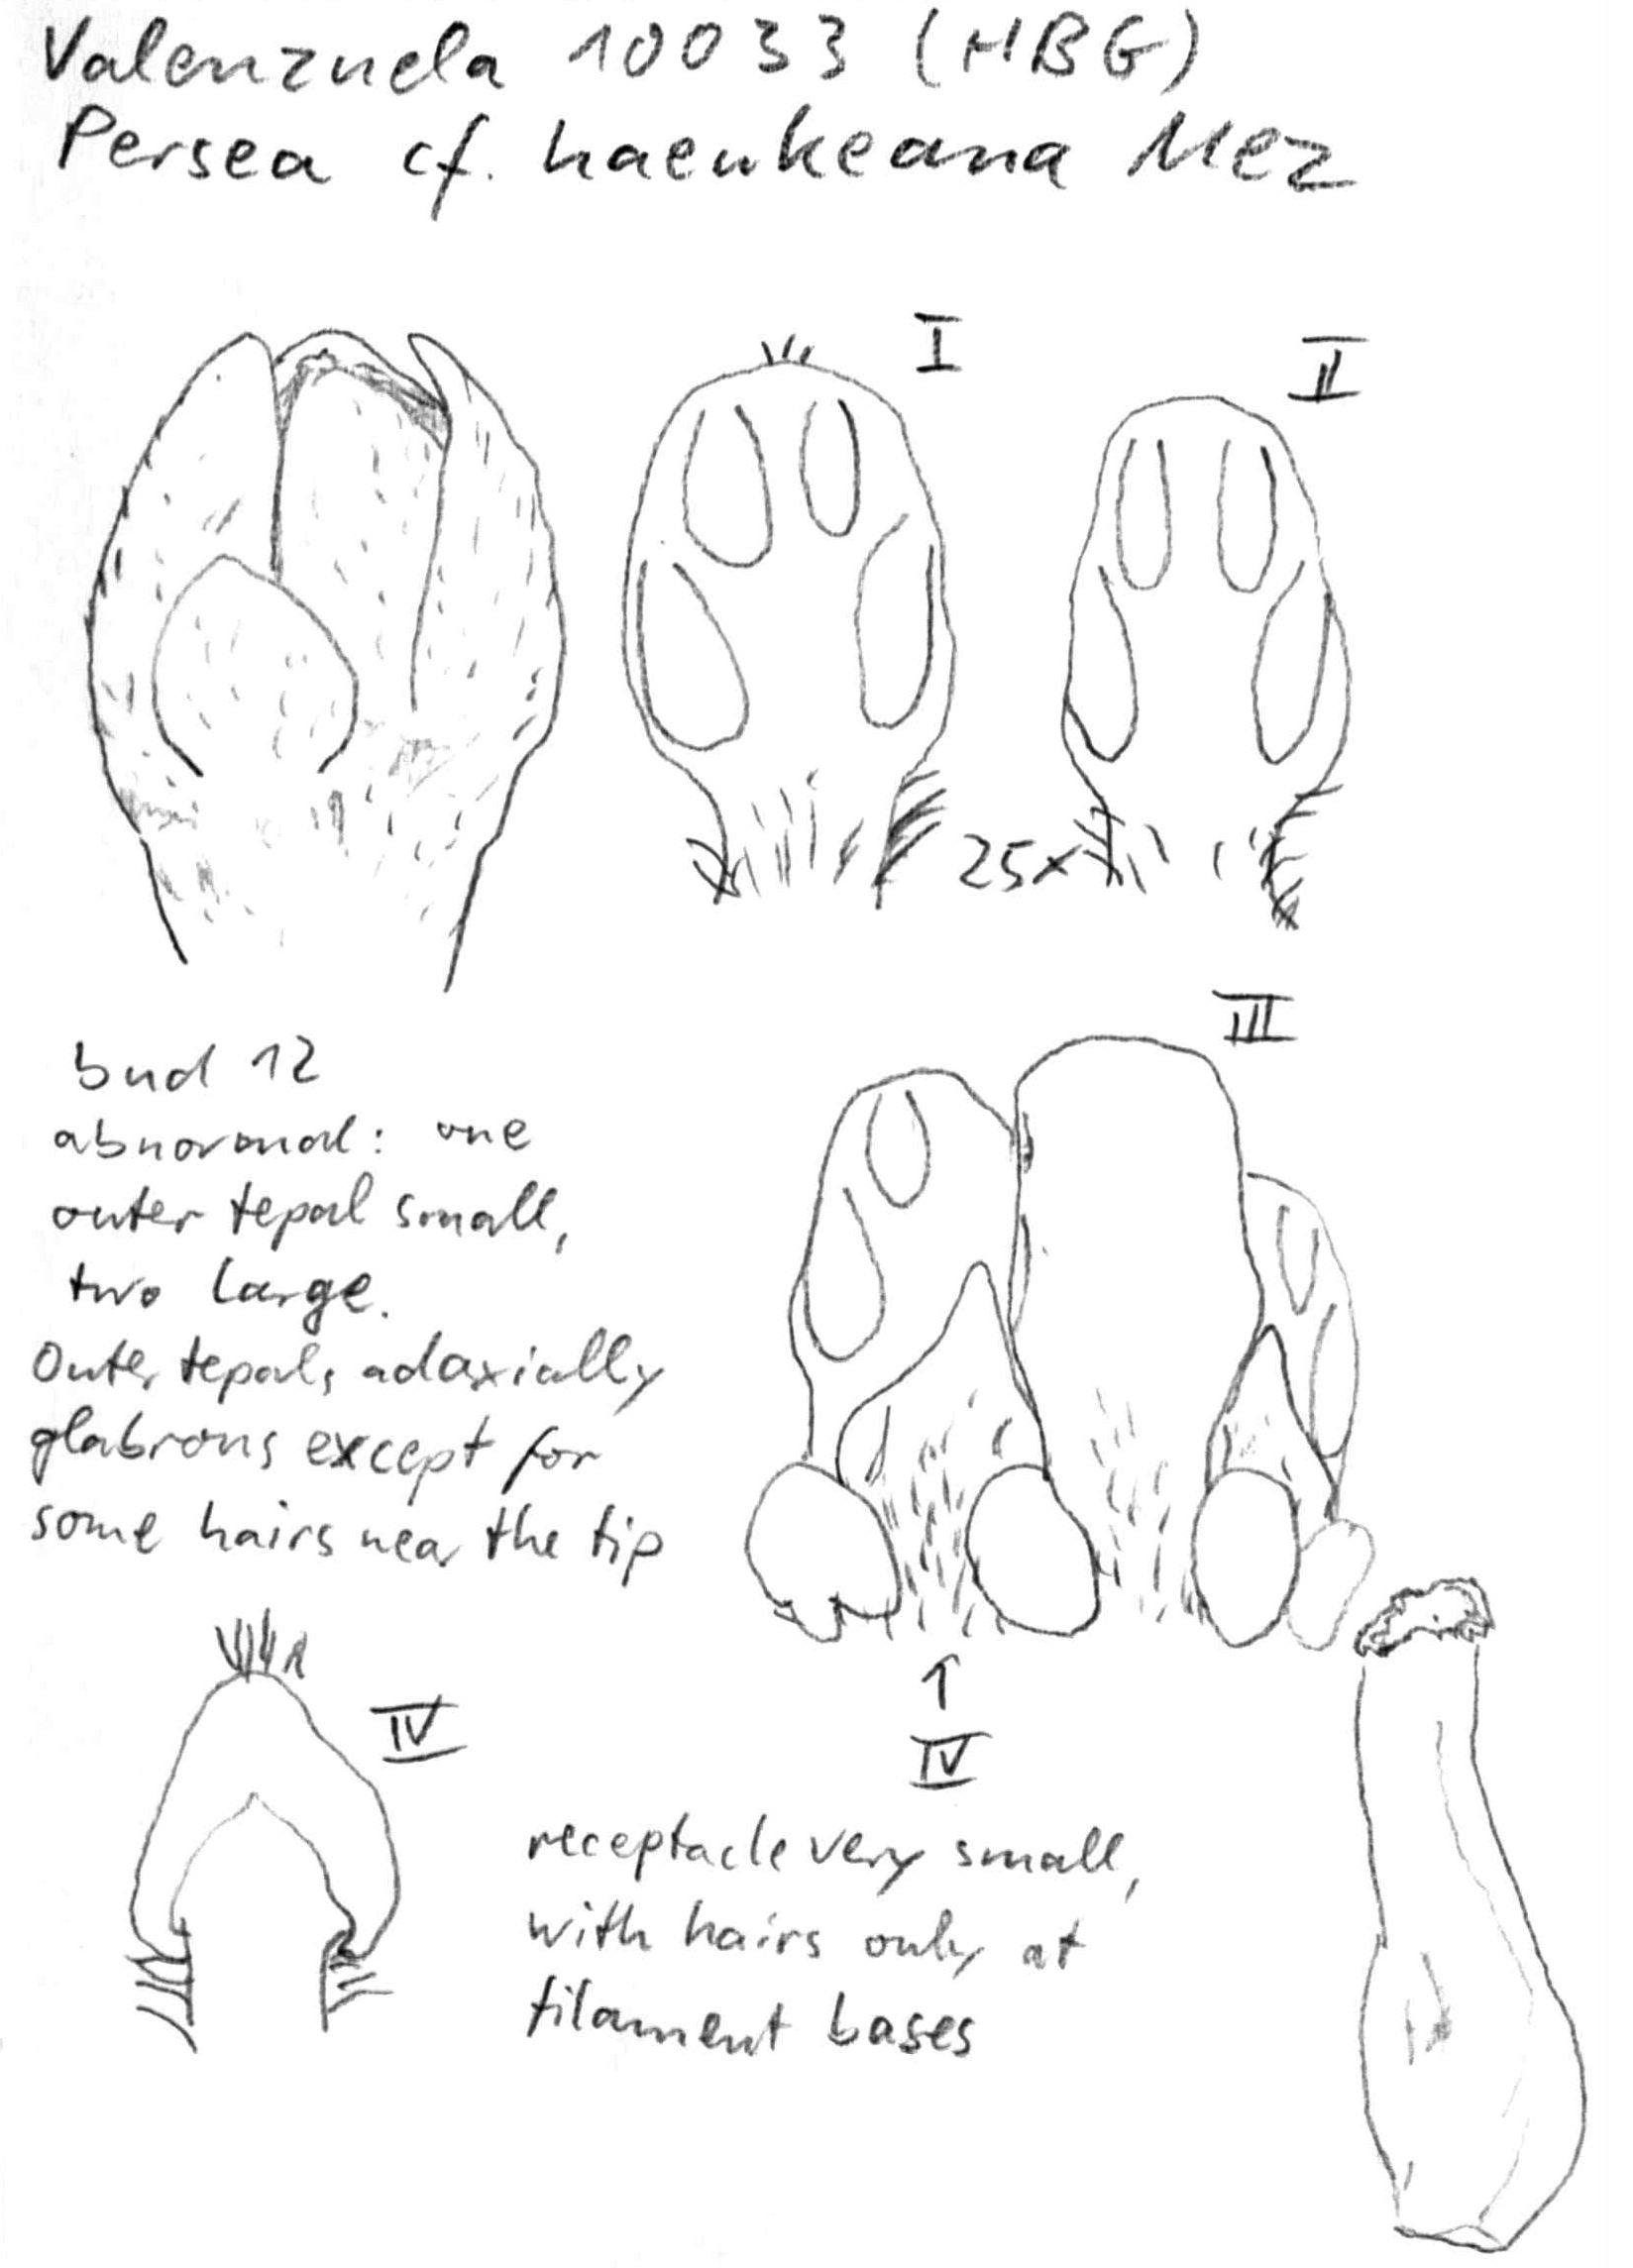 Valenzuela 10033 (HBG)
Persea cf. haenkeana Mez
I
II
25x
III
bud 12
abnormal: one
outer tepal small,
two large.
Outer tepals adaxially
glabrous except for
some hairs near the tip
IV
↑
IV
receptacle very small,
with hairs only at
filament bases